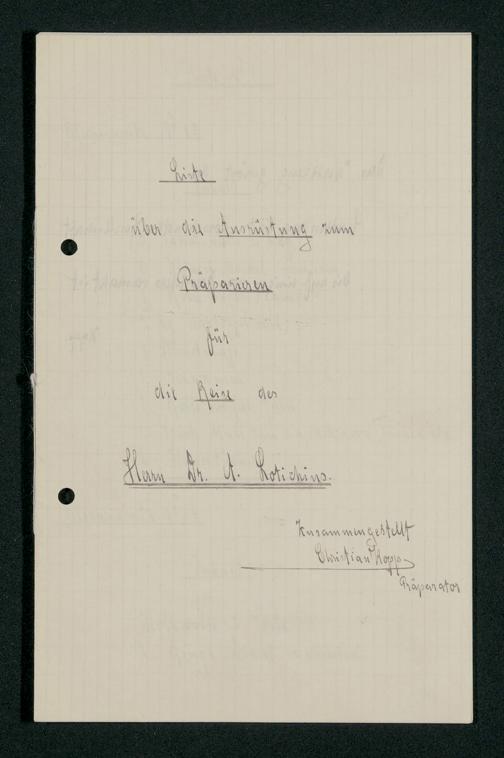 Liste
über die Ausrüstung zum
Präparieren
für
die Reise des
Herrn Dr. A. Lotichius.
Zusammengestellt
Christian Kopp
Präparator